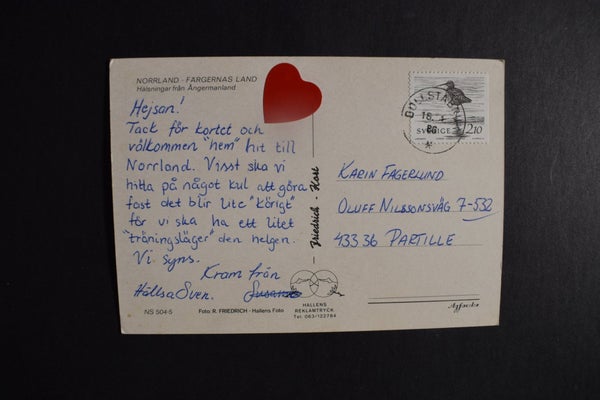 NORRLAND - FÄRGERNAS LAND
Hälsningar från Ångermanland
Hejsan!
Tack för kortet och
välkommen "hem" hit till
Norrland. Visst ska vi
hitta på något kul att göra
fast det blir lite "körigt"
för vi ska ha ett litet
"träningsläger" den helgen.
Vi syns.
Kram från
Hälsa Sven. Susanne
NS 504-5
Foto: R. FRIEDRICH - Hallens Foto
Friedrich - Kort
HALLENS
REKLAMTRYCK
Tel. 063/122784
SVERIGE 2.10
86
KARIN FAGERLUND
OLUFF NILSSONSVÄG 7-532
433 36 PARTILLE